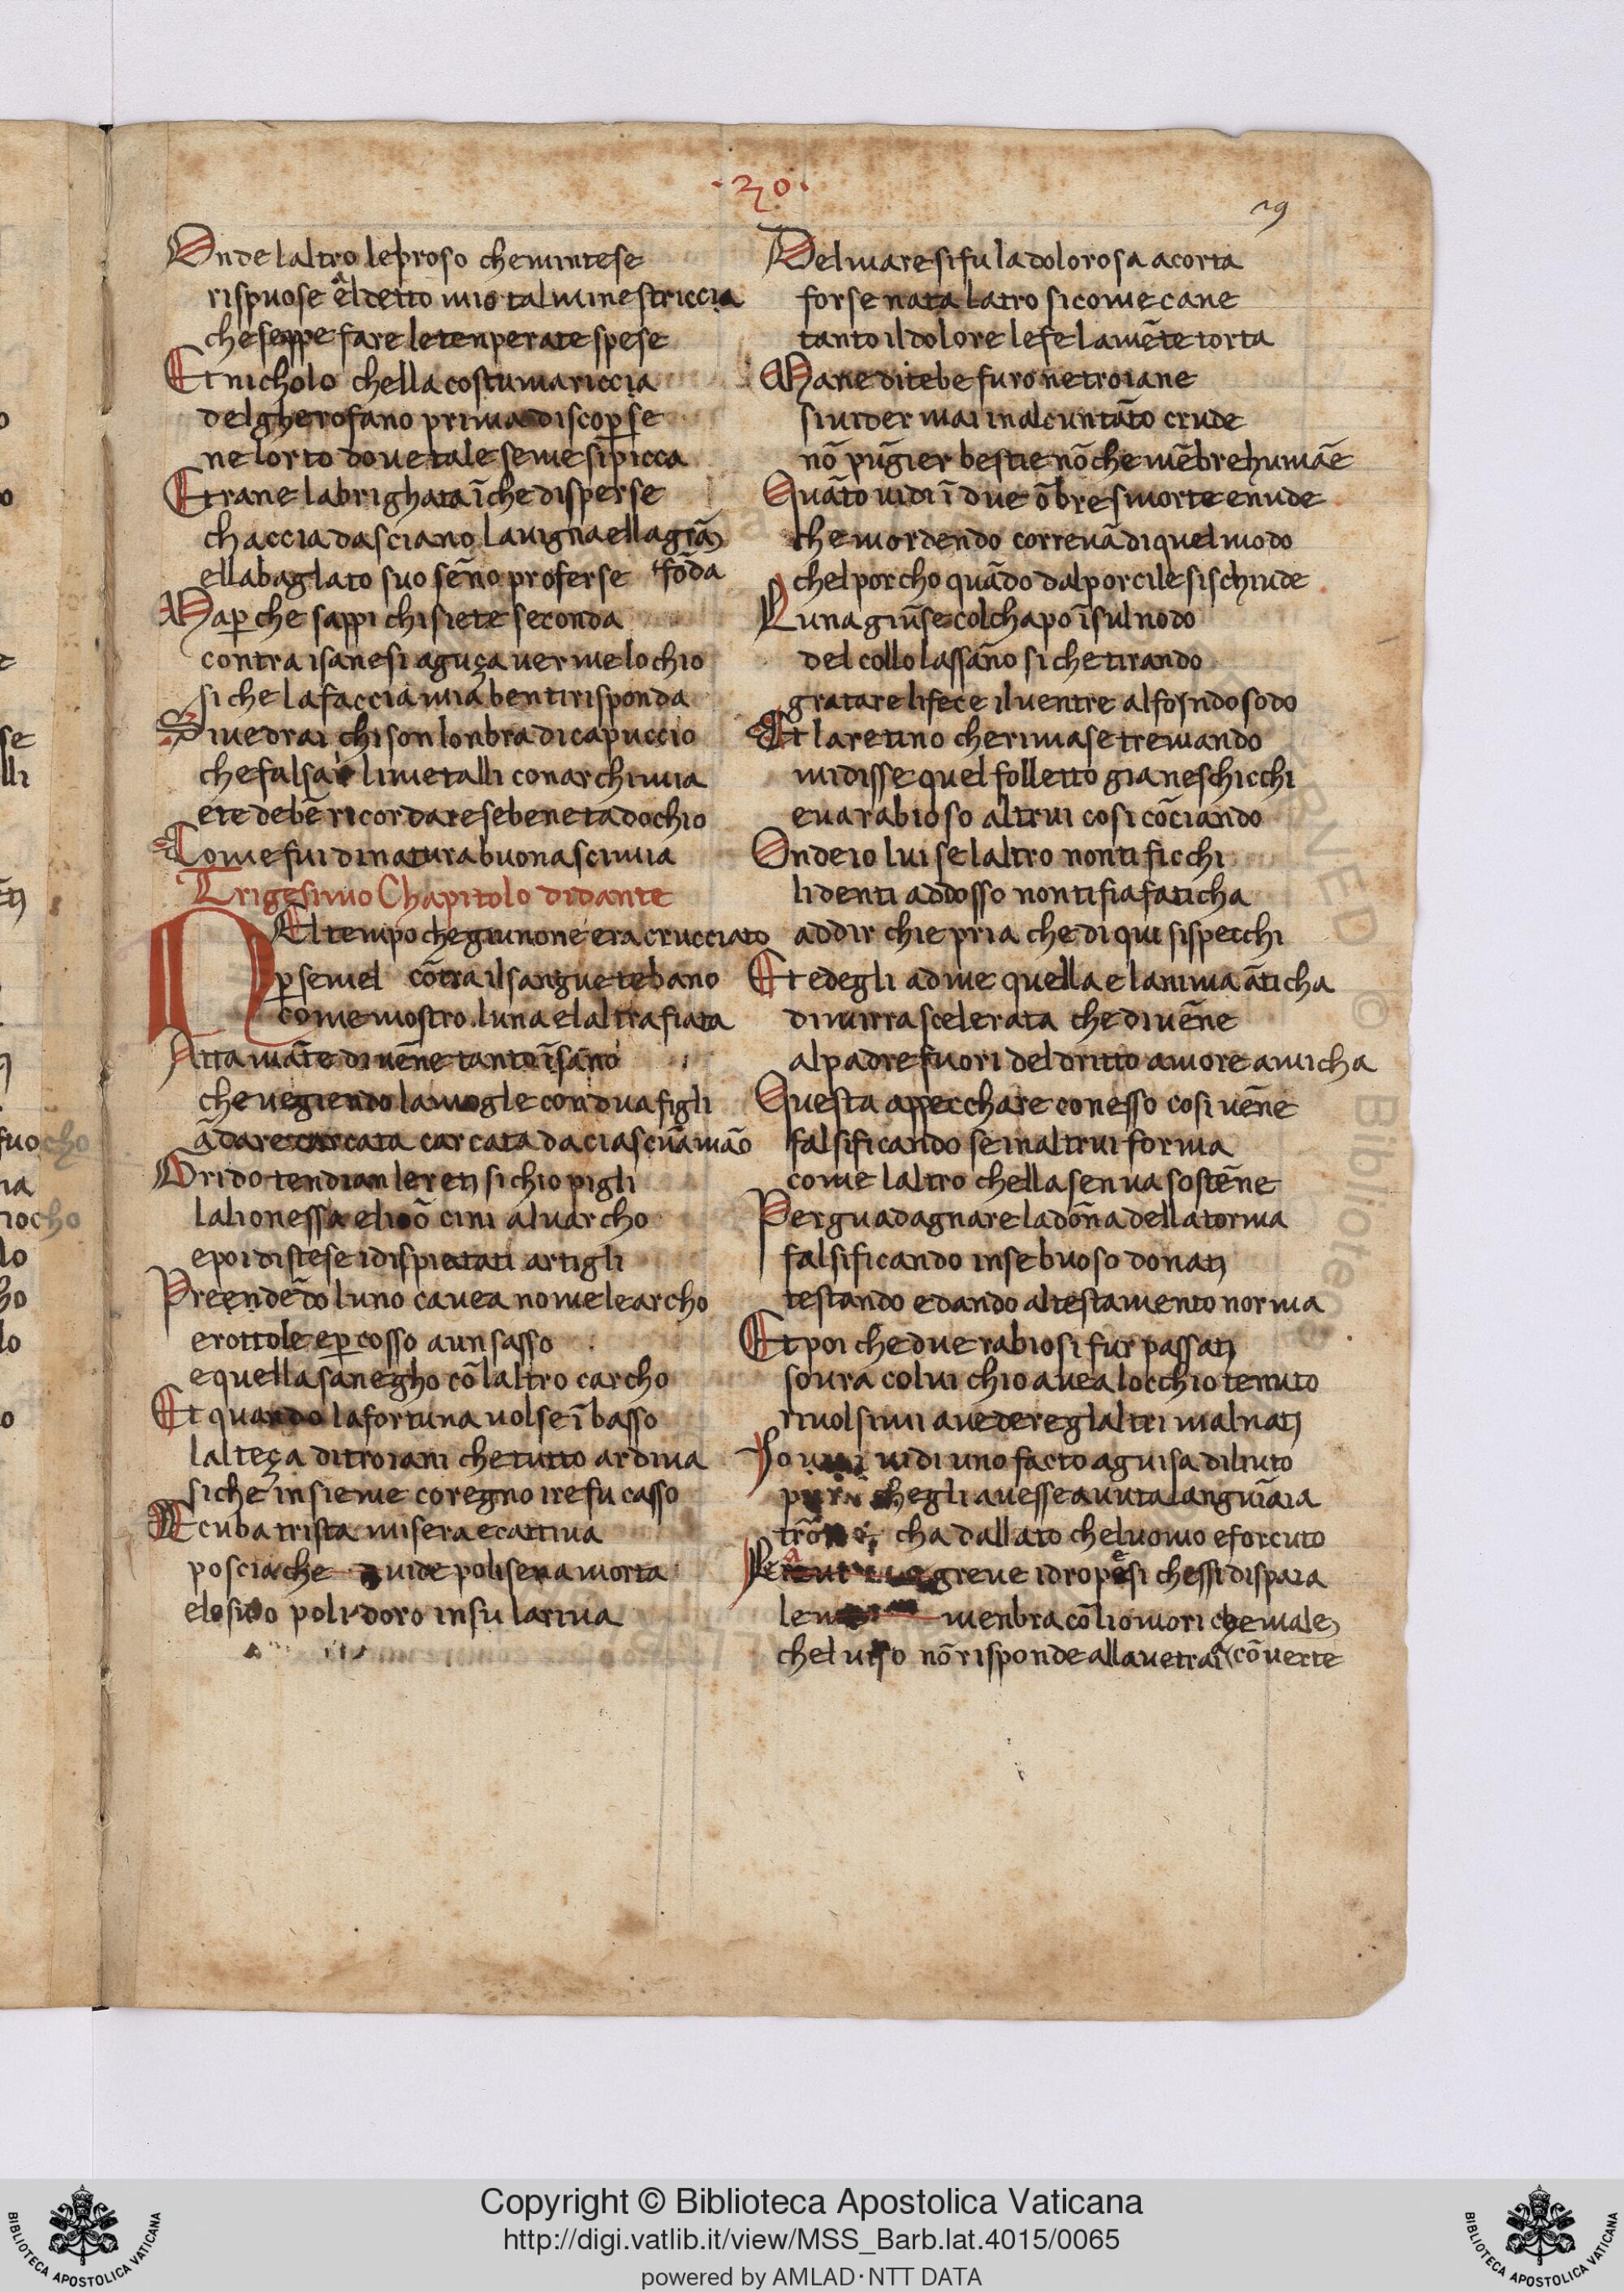 .30.
29
Onde laltro leproso che mintese
rispuose al detto mio talmine striccia
che seppe fare le tenperate spese
Et nicholo chella costuma riccia
del gherofano prima discop̱se
nelorto doue tale seme sipicca
Et rane la brighata īche disperse
chaccia dasciano lauigna ella grā
fōda
ellabaglato suo sēno proferse
Map̱che sappi chi siete seconda
contra isanesi aguça uerme lochio
si che la faccia mia ben ti risponda
Si uedrai chi son lonbra di capuccio
che falsai li metalli con archimia
ete debē ricordare se bene tadochio
Come fui di natura buona scimia
Trigesimo Chapitolo di dante
NEl tempo che giunone era crucciato
p̱ semel cōtra il sangue tebano
come mostro luna el altra fiata
Attamāte diuēne tanto īsano
che uegiendo la mogle con dua figli
ādare carcata carcata da ciascūa māo
Grido tendian le reti si chio pigli
la lionessa e līoō cini al uarcho
e poi distese i dispietati artigli
Preendēdo luno cauea nome learcho
e rottole e p̱cosso a un sasso
e quella sanegho cō laltro carcho
Et quando la fortuna uolse ī basso
lalteça di troiani che tutto ardiua
si che insieme co regno i re fu casso
Ecuba trista misera e cattiua
poscia che uide polisena morta
el suo polidoro in su la riua
Del mare si fu la dolorosa acorta
forsenata latro si come cane
tanto il dolore le fe la mēte torta
Mane di tebe furo ne troiane
si uider mai in alcun tāto crude
nō pūgier bestie nō che mēbre humāe
Quāto uidi ī due ōbre smorte e nude
che mordendo correuā di quel modo
chel porcho quādo dal porcile si schiude
Luna giūse col chapo ī sul nodo
del collo lassāno si che tirando
gratare li fece il uentre al fondo sodo
Et laretino che rimase tremando
midisse quel folletto gianeschicchi
eua rabioso altrui cosi cōciando
Onde io lui se laltro non ti ficchi
li denti addosso non ti fia faticha
addir chi e pria che di qui si specchi
Et edegli ad me quella e lanima āticha
di mirra scelerata che diuēne
al padre fuori del dritto amore amicha
Questa appecchare con esso cosi uēne
falsificando se in altrui forma
come laltro chella sen ua sostēne
Per guadagnare la dōna della torma
falsificando in se buoso donati
testando e dando al testamento norma
Et poi che due rabiosi fur passati
soura colui chio auea locchio tenuto
riuolsimi a uedere gl altri mal nati
Io uidi uno facto a guisa di liuto
pur chegli auesse auuta languīaia
trō cha dallato cheluomo e forcuto
La greue idropesi chessi dispaia
le menbra cō liomori che male
cōuerte
chel uiso nō risponde alla uetraia
Copyright © Biblioteca Apostolica Vaticana
http://digi.vatlib.it/view/MSS_Barb.lat.4015/0065
powered by AMLAD·NTT DATA
BIBLIOTECA APOSTOLICA VATICANA
BIBLIOTECA APOSTOLICA VATICANA